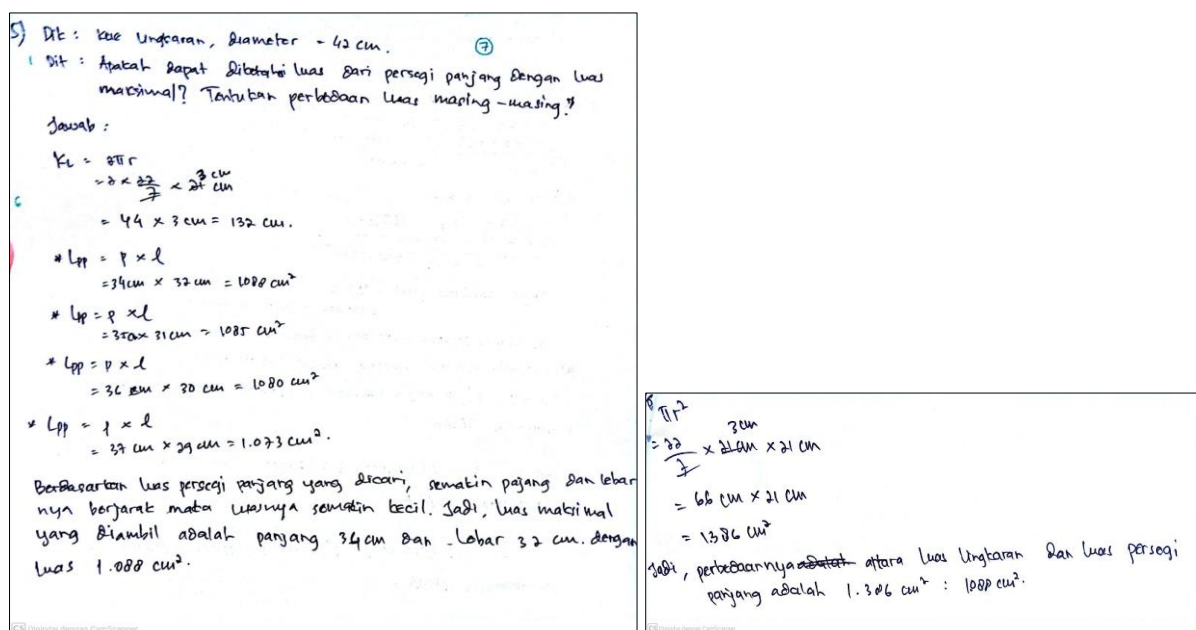 5) Dik : kue lingkaran, diameter = 42 cm. 7
Dit : Apakah dapat diketahui luas dari persegi panjang dengan luas
maksimal? Tentukan perbedaan luas masing-masing?
Jawab :
KL = 2πr
= 2 × 22/7 × 21 cm 3 cm
= 44 × 3 cm = 132 cm.
* Lpp = p × l
= 34 cm × 32 cm = 1088 cm²
* Lpp = p × l
= 35 cm × 31 cm = 1085 cm²
* Lpp = p × l
= 36 cm × 30 cm = 1080 cm²
* Lpp = p × l
= 37 cm × 29 cm = 1.073 cm².
Berdasarkan luas persegi panjang yang dicari, semakin pajang dan lebar
nya berjarak maka luasnya semakin kecil. Jadi, luas maksimal
yang diambil adalah panjang 34 cm dan lebar 32 cm. dengan
luas 1.088 cm².
CS Dipindai dengan CamScanner
πr²
= 22/7 × 21 cm × 21 cm 3 cm
= 66 cm × 21 cm
= 1386 cm²
Jadi, perbedaannya adalah antara luas lingkaran dan luas persegi
panjang adalah 1.386 cm² : 1088 cm².
CS Dipindai dengan CamScanner